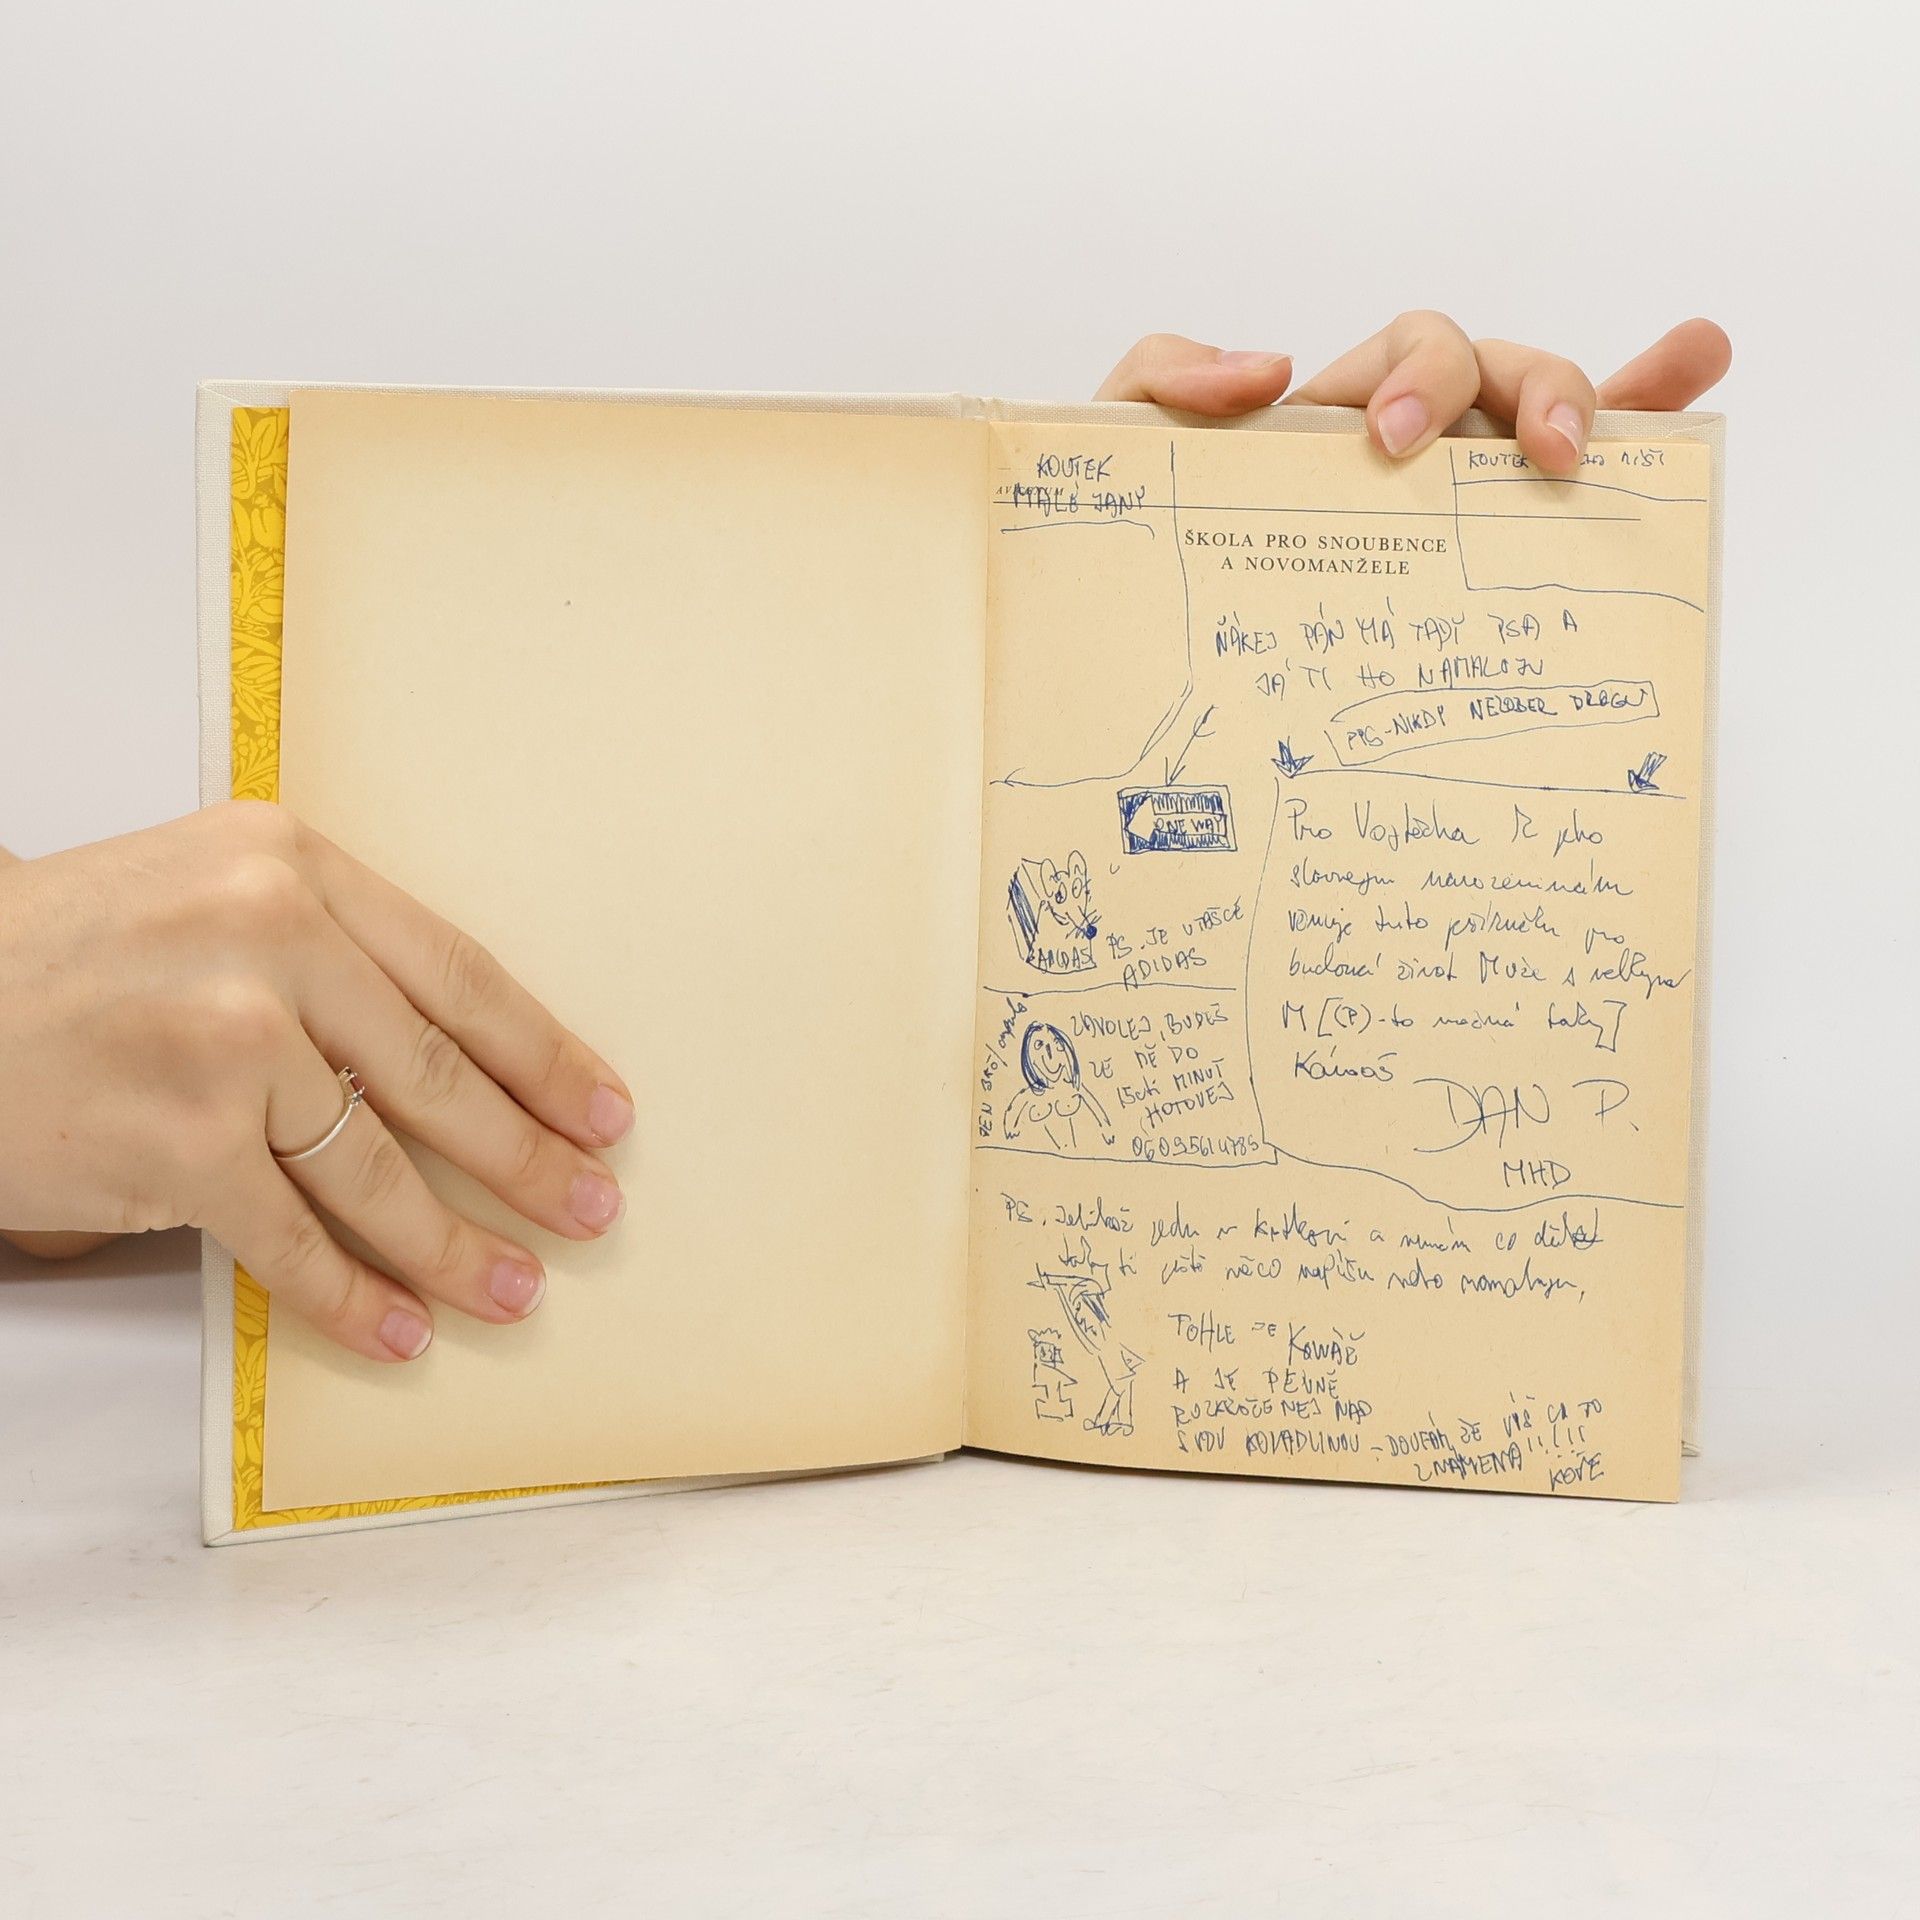 KOUTEK
MALÉ JANY
AVICENUM
KOUTEK
ŠKOLA PRO SNOUBENCE
A NOVOMANŽELE
ŇÁKEJ PÁN MÁ TADY PSA A
JÁ TI HO NAMALUJU
PPS - NIKDY NEZOBER DROGU
ONE WAY
ADIDAS
PS. JE V TAŠCE
ADIDAS
Pro Vojtěcha K jeho
slavnejm narozeninám
věnuje tuto příručku pro
budoucí život Muže s velkym
M [(P) - to možná taky]
Kámoš
DAN P.
MHD
ZAVOLEJ, BUDEŠ
ZE MĚ DO
15cti MINUT
HOTOVEJ
PS. Jelikož jedu v a nemám co dělat
taky ti ještě něco napíšu nebo namaluju,
TOHLE JE KOVÁŘ
A JE PEVNĚ
ROZKROČENEJ NAD
SVOU KOVADLINOU - DOUFÁM, ŽE VÍŠ CO TO
ZNAMENÁ !!!!!